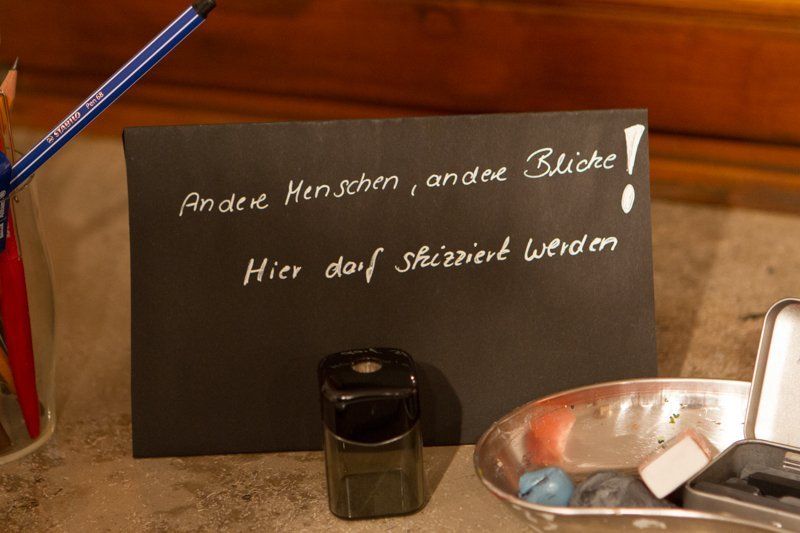 Andere Menschen, andere Blicke!
Hier darf skizziert werden
STABILO Pen 68